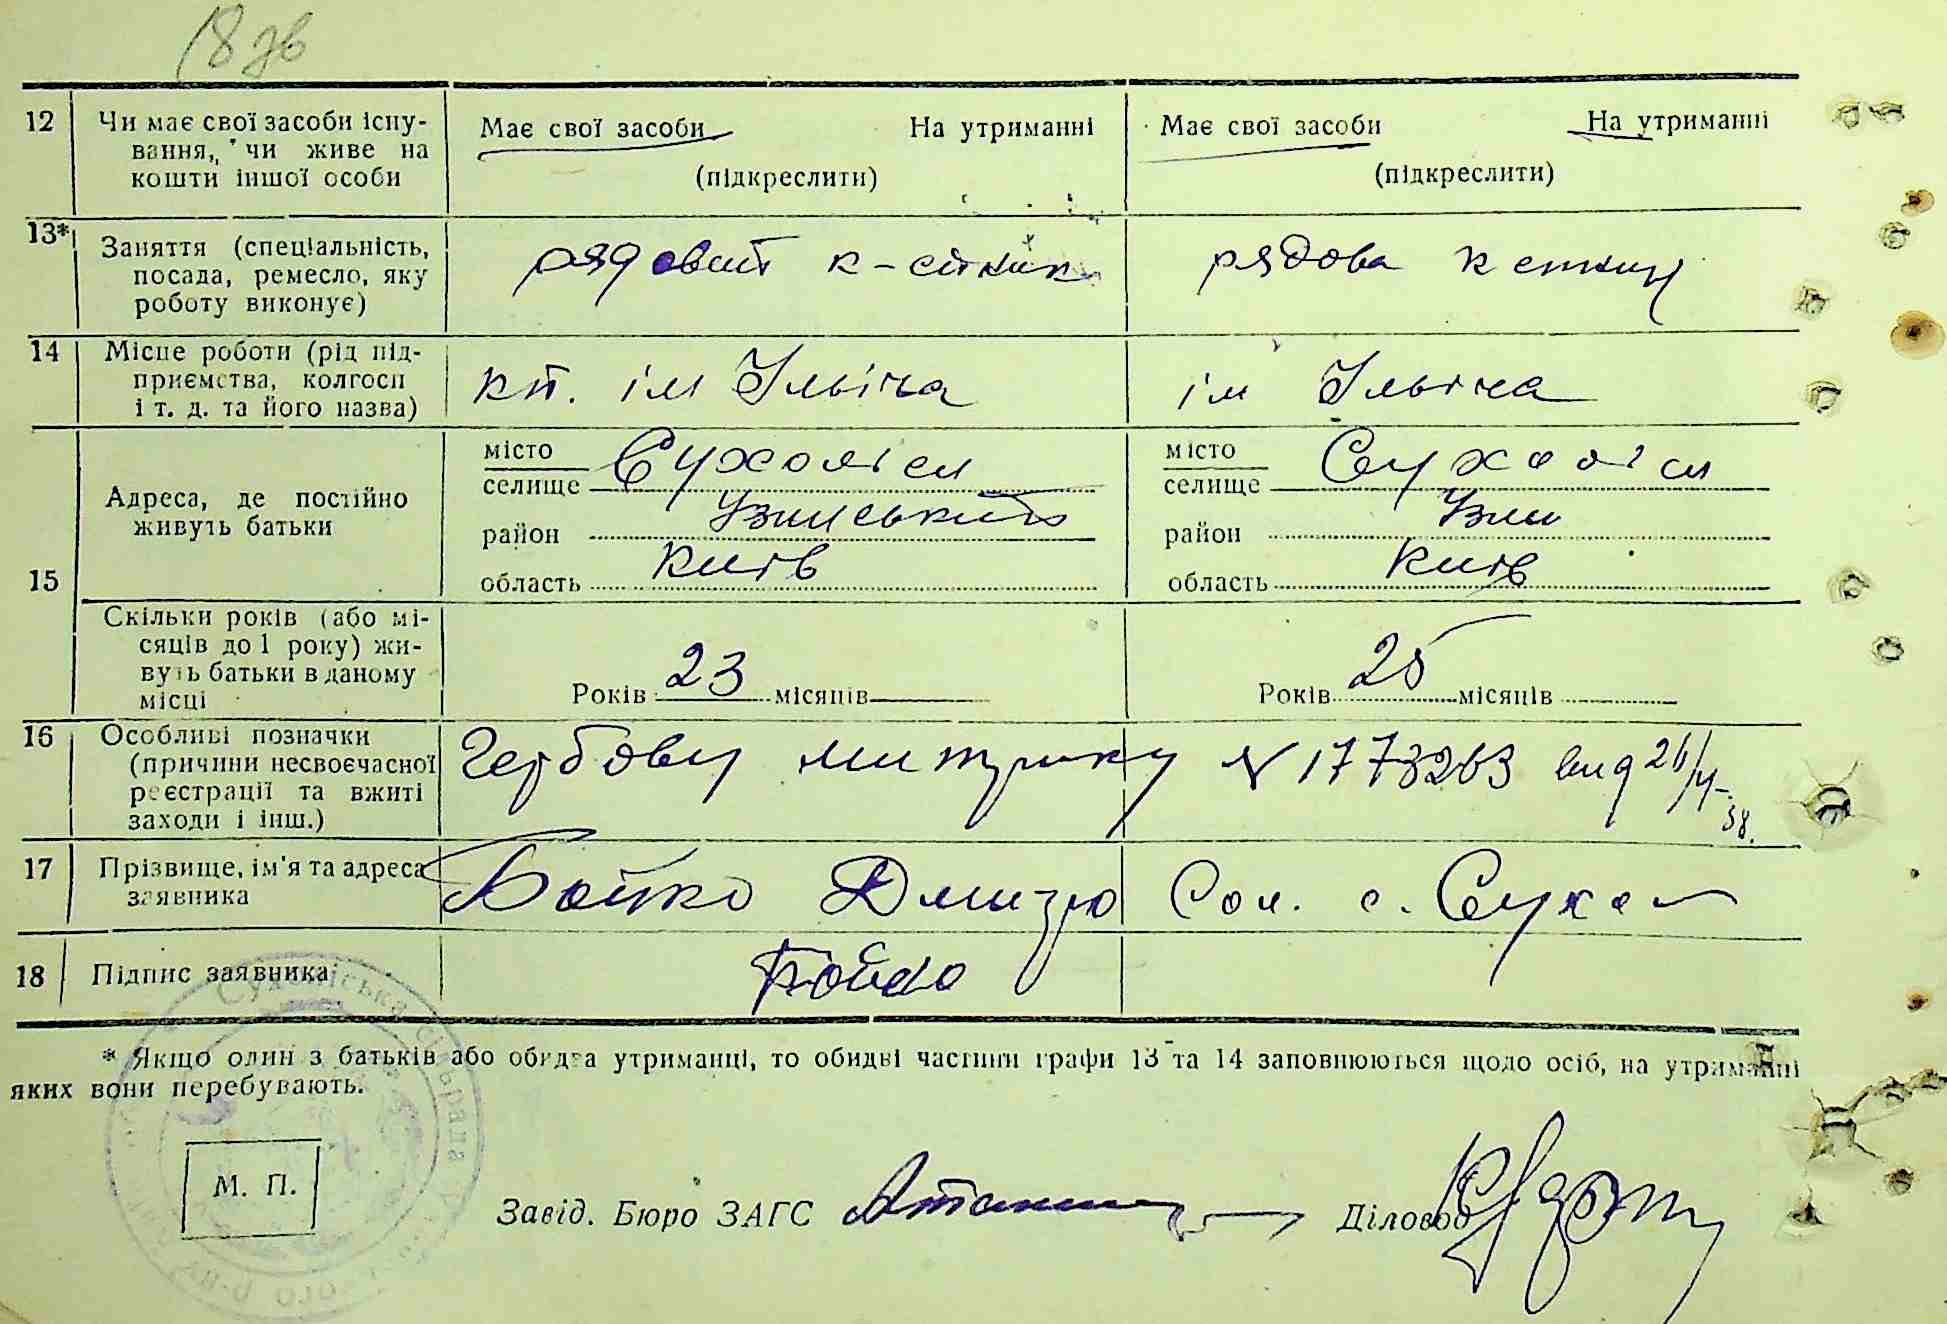 18 зв
12 Чи має свої засоби існу- Має свої засоби На утриманні Має свої засоби На утриманні
вання, чи живе на
кошти іншої особи (підкреслити) (підкреслити)
13* Заняття (спеціальність, рядовий к-сник рядова
посада, ремесло, яку
роботу виконує)
14 Місце роботи (рід під-
приємства, колгосп кп. ім Ільіча ім Ільіча
і т. д. та його назва)
15 Адреса, де постійно
живуть батьки
місто місто
селище Сухоліси селище Сухоліси
район Узинський район Узин
область Київ область Київ
Скільки років (або мі-
сяців до 1 року) жи-
вуть батьки в даному
місці Років 23 місяців Років 25 місяців
16 Особливі позначки
(причини несвоєчасної Гербову N 1773263 вид 26/VI-38.
реєстрації та вжиті
заходи і інш.)
17 Прізвище, ім'я та адреса Бойко Дмитро Сол. с. Сухол
заявника
18 Підпис заявника Бойко
* Якщо один з батьків або обидва утриманці, то обидві частини графи 13 та 14 заповнюються щодо осіб, на утриманні
яких вони перебувають.
М. П.
Завід. Бюро ЗАГС Діловод
Сухоліська сільрада